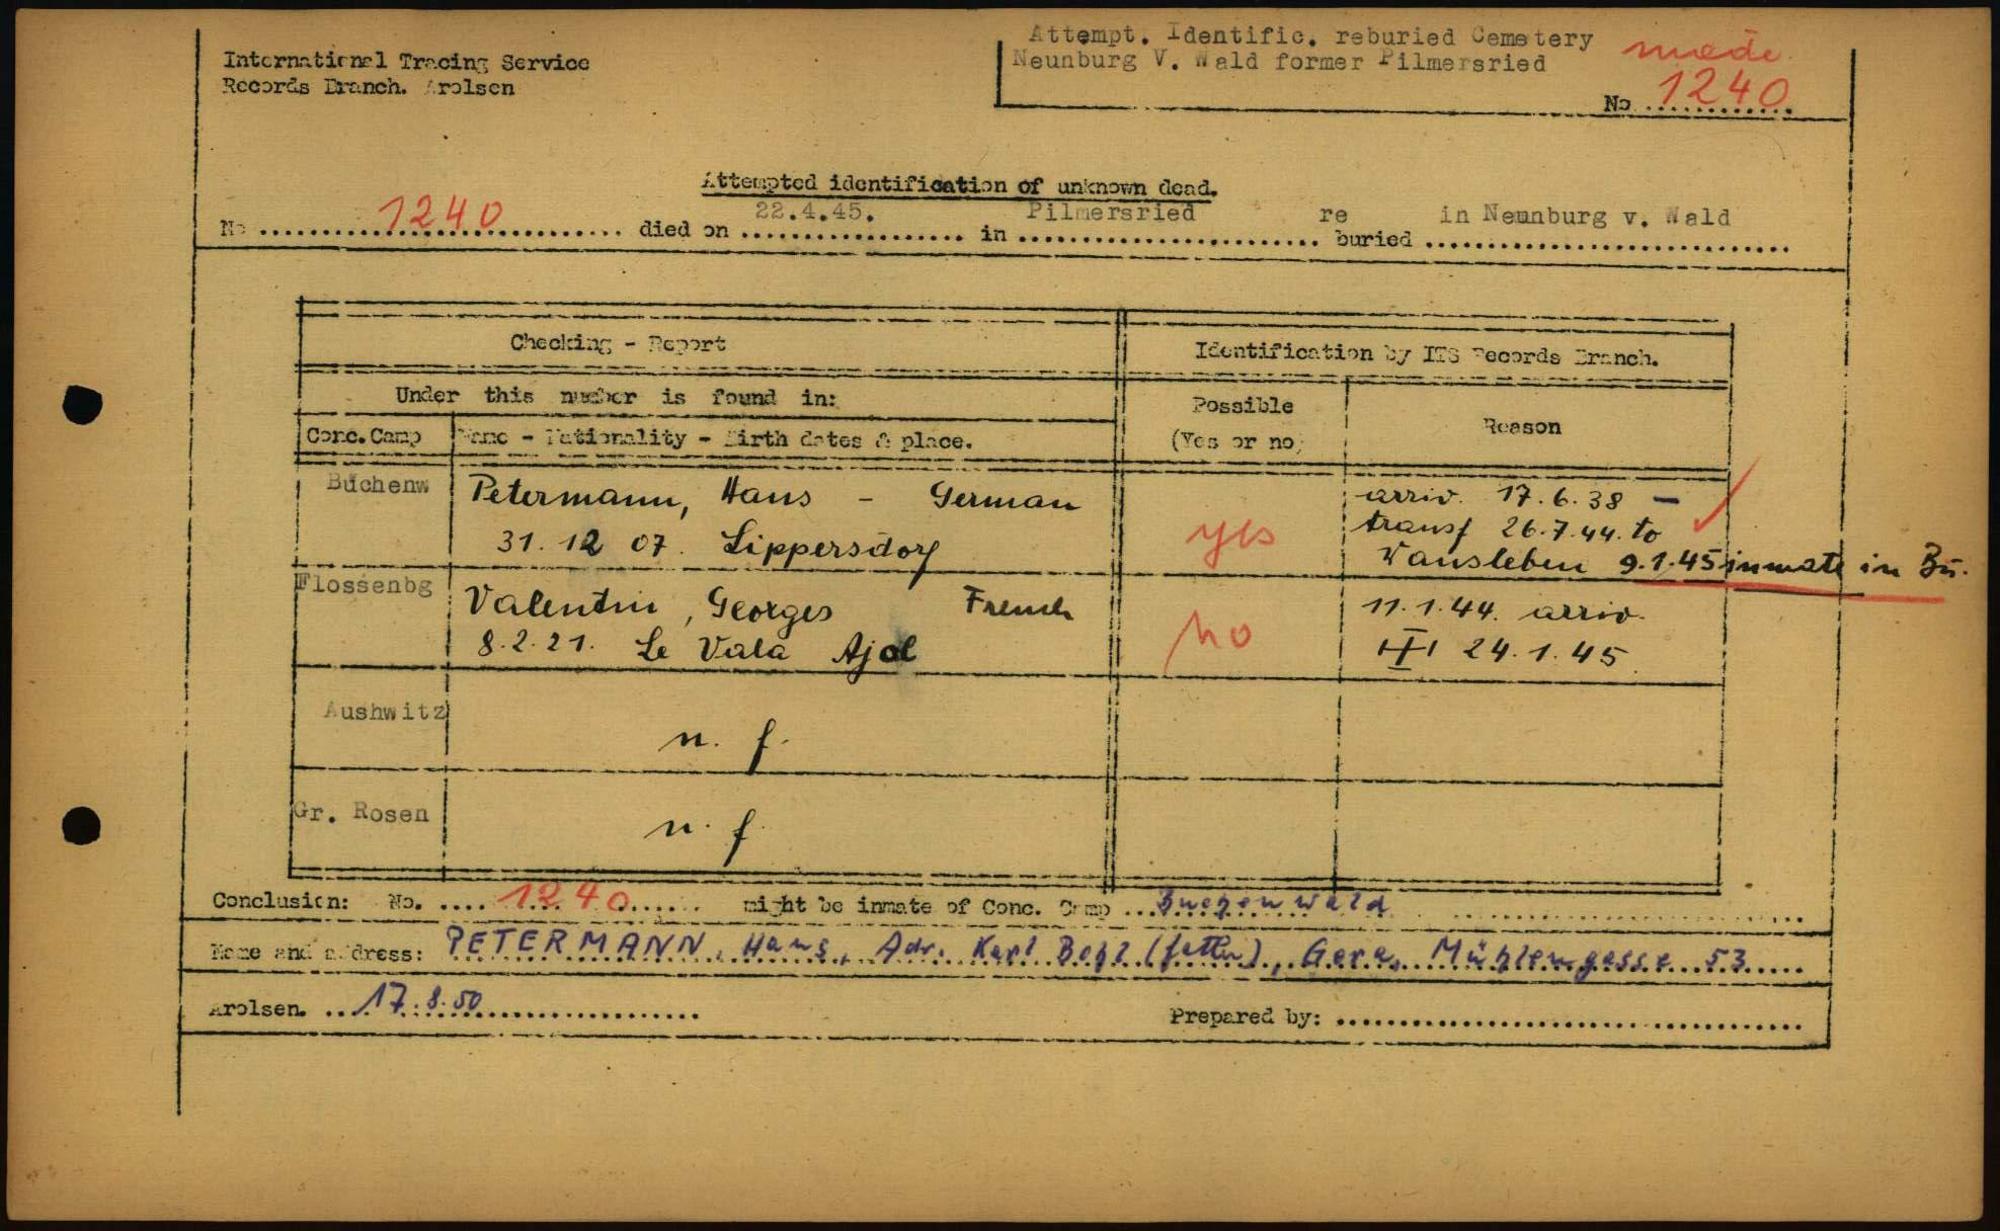 Attempt. Identific. reburied Cemetery
Neunburg V. Wald former Pilmersried
made
No 1240
International Tracing Service
Records Branch. Arolsen
Attempted identification of unknown dead.
No 1240 died on 22.4.45. in Pilmersried re buried in Neunburg v. Wald
Checking - Report
Identification by ITS Records Branch.
Under this number is found in:
Possible (Yes or no)
Reason
Conc. Camp
Name - Nationality - Birth dates & place.
Buchenw
Petermann, Hans - German
31. 12 07. Lippersdorf
yes
arriv. 17.6.38 -
transf 26.7.44. to
Wansleben 9.1.45 inmate in Bu.
Flossenbg
Valentin, Georges French
8.2.21. Le Vala Ajol
no
11.1.44. arriv.
24.1.45
Aushwitz
n. f.
Gr. Rosen
n. f.
Conclusion: No. 1240 might be inmate of Conc. Camp Buchenwald
Name and address: PETERMANN, Hans, Adr. Karl (father), Gera, Mühlengasse 53
Arolsen. 17.8.50
Prepared by: